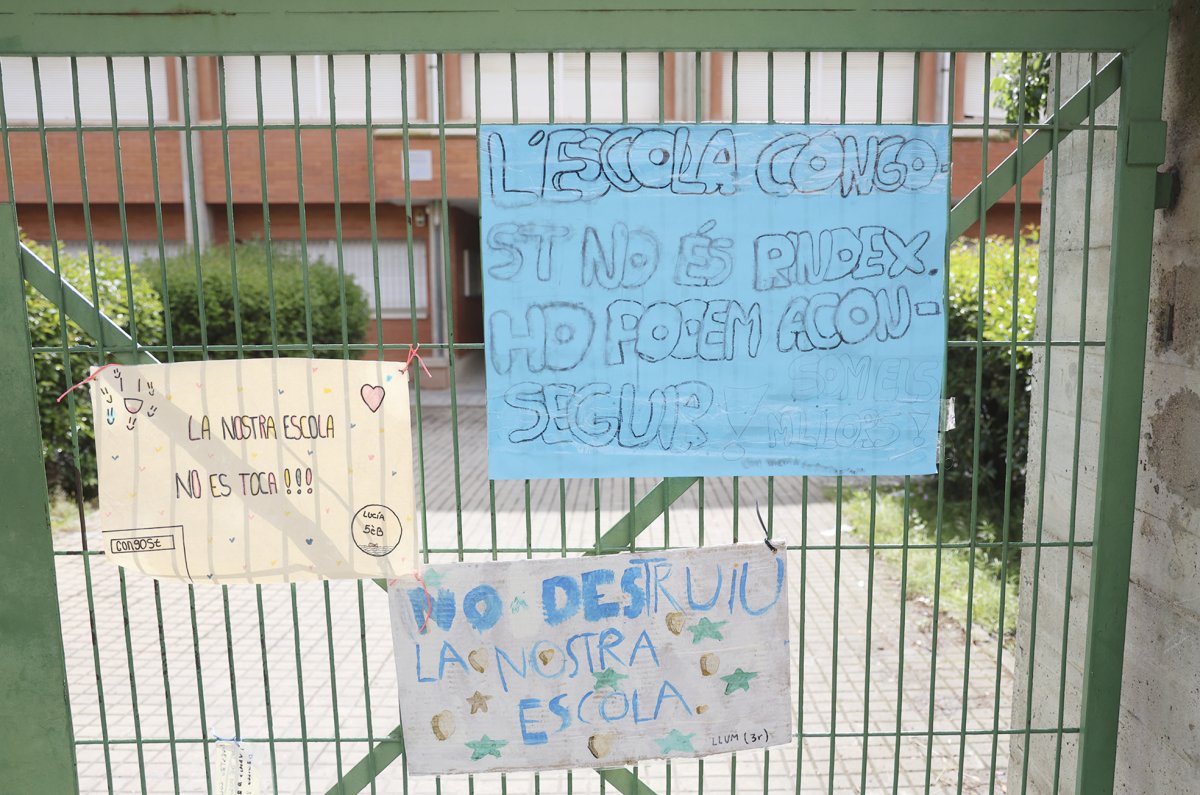 L'ESCOLA CONGO-
ST NO ÉS RNDEX.
HO PODEM ACON-
SEGUR!
SOM ELS
MILLORS!
LA NOSTRA ESCOLA
NO ES TOCA !!!
LUCÍA
5èB
CONGOST
NO DESTRUIU
LA NOSTRA
ESCOLA
LLUM (3r)